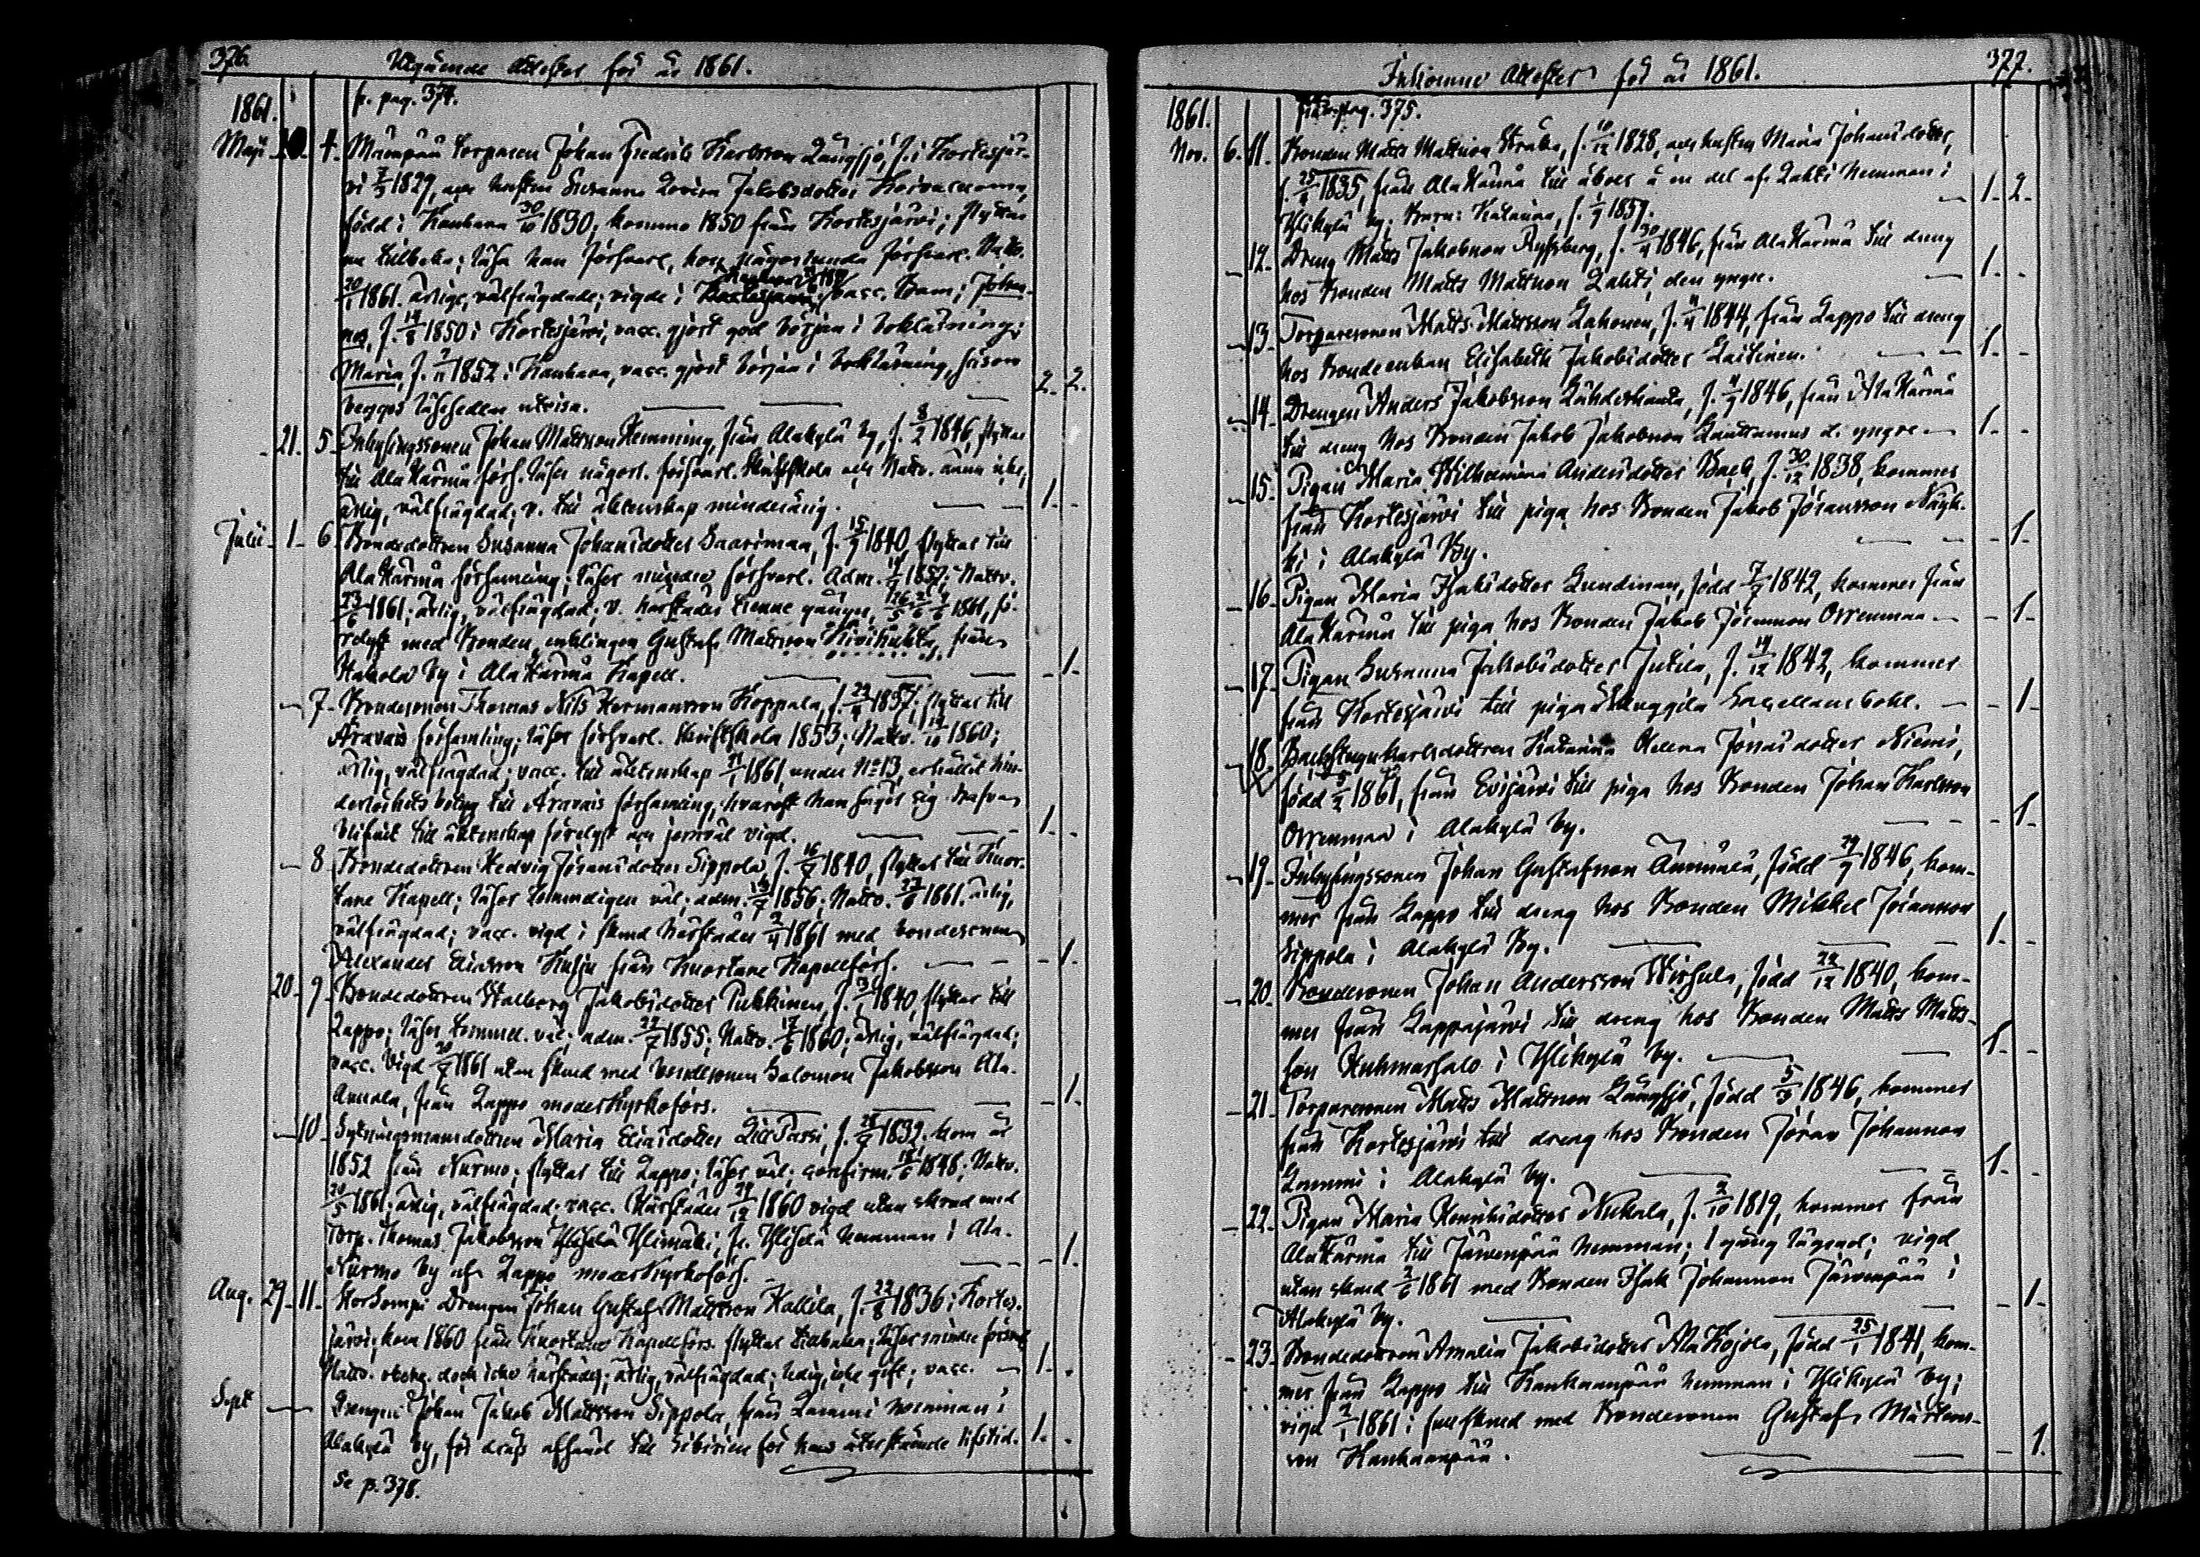 376.
Utgående Attester för år 1861.
1861.
fr. pag. 374.
Maji 10. 4. Mämpää torparen Johan Fredrik Karlsson Långsjö, f. i Kortesjär-
vi 7/3 1829, och hustru Susanna Lovisa Jakobsdotter
född i Kauhava 30/10 1830; kommo 1850 från Kortesjärvi; flyttar
nu tillbaka; läsa han försvarl., hon någorlunda försvarl. Nattv.
20/1 1861. ärlige, välfrägdade; vigde i vacc. Barn: Johan-
nes, f. 14/8 1850 i Kortesjärvi, vacc. gjort god början i boklärning;
Maria, f. 1852 i Kauhava, vacc. gjort början i boklärning, såsom
begges läsesedlar utvisa. 2. 2.
21. 5. Inhysingssonen Johan Mattsson Hemming, från Alakylä by, f. 8/2 1846, flyttar
till Ala Härmä förs. läser någorl. försvarl. Skriftskola och Nattv. ännu icke,
ärlig, välfrägdad; v. till äktenskap minderårig. 1.
Julii 1. 6. Bondedottren Susanna Johansdotter Saarimaa, f. 15/7 1840, flyttar till
Ala Härmä församling; läser mindre försvarl. Adm. 1857; Nattv.
23/6 1861; ärlig, välfrägdad; v. härstädes trenne gånger, 26/5 2/6 9/6 1861, fö-
relyst med Bonden, enklingen Gustaf Mattsson Kivihuhta, från
Hakola by i Ala Härmä Kapell. 1.
7. Bondesonen Thomas Nils Hermansson Koppala, f. 1837; flyttar till
Oravais församling; läser försvarl. Skriftskola 1853; Nattv. 14/10 1860;
ärlig, välfrägdad; vacc. till äktenskap 1861, under No 13, erhållit hin-
derlöshets betyg till Oravais församling, hvarest han säges sig hafva
blifvit till äktenskap förelyst och jemväl vigd. 1.
8. Bondedottren Hedvig Jöransdotter Sippola, f. 1840, flyttar till Kuor-
tane Kapell; läser temmeligen väl; adm. 1856; Nattv. 23/6 1861. ärlig,
välfrägdad; vacc. vigd i skrud härstädes 1861 med bondesonen
Alexander Ericsson från Kuortane Kapellförs. 1.
20. 9. Bondedottren Walborg Jakobsdotter Pukkinen, f. 1840, flyttar till
Lappo; läser temmel. väl; adm. 1855; Nattv. 17/6 1860; ärlig, välfrägdad;
vacc. vigd 1861 utan skrud med bondesonen Salomon Jakobsson Ala-
Annala, från Lappo moderkyrkoförs. 1.
10. Sytningsmansdottren Maria Eliasdotter Lill Passi, f. 1832. kom år
1852 från Nurmo; flyttar till Lappo; läser väl; confirm. 1848; Nattv.
20/5 1861; ärlig, välfrägdad; vacc. Härstädes 1860 vigd utan skrud med
Torp. Thomas Jakobsson Ylimäki, fr. hemman i Ala-
Nurmo by af Lappo moderkyrkoförs. 1.
Aug. 29. 11. Drengen Johan Gustaf Mattsson Kallila, f. 22/8 1836 i Kortes-
järvi; kom 1860 från Kuortane Kapellförs. flyttar tillbaka; läser mindre försvarl
Nattv. dock icke härstädes; ärlig, välfrägdad; ledig, icke gift; vacc. 1.
Sept. Drengen Johan Jakob Mattsson Sippola, från Lammi hemman i
Alakylä by, för dråp afsänd till Sibirien för hans återstående lifstid. 1.
Se p. 378.
377.
Inkomne Attester för år 1861.
1861.
från pag. 375.
Nov. 6. 11. Bonden Matts Mattsson Straka, f. 10/12 1828, och hustru Maria Johansdotter,
f. 25/4 1835, från Ala Härmä till åboer å en del af Lahti hemman i
Ylikylä by; Barn: Katarina, f. 1/9 1859. 1. 2.
12. Dreng Matts Jakobsson Ryssberg, f. 30/4 1846, från Ala Härmä till dreng
hos Bonden Matts Mattsson Lahti, den yngre. 1.
13. Torparesonen Matts Mattsson Lahonen, f. 1844, från Lappo till dreng
hos Bondeenkan Elisabeth Jakobsdotter Laitinen. 1.
14. Drengen Anders Jakobsson Lähdeshanta, f. 1846, från Ala Härmä
till dreng hos Bonden Jakob Jakobsson Lauttamus d. yngre 1.
15. Pigan Maria Wilhelmina Andersdotter Back, f. 30/12 1838, kommer
från Kortesjärvi till piga hos Bonden Jakob Jöransson Näyk-
ki i Alakylä By. 1.
16. Pigan Maria Isaksdotter Grundman, född 7/7 1842, kommer från
Ala Härmä till piga hos Bonden Jakob Jöransson Orrenmaa 1.
17. Pigan Susanna Jakobsdotter Jutila, f. 14/12 1842, kommer
från Kortesjärvi till piga å Skuggila Capellansbohl. 1.
18. Backstugukarlsdottren Katarina Helena Jonasdotter Niemi,
född 5/2 1861, från Evijärvi till piga hos Bonden Johan Karlsson
Orrenmaa i Alakylä by. 1.
19. Inhysingssonen Johan Gustafsson Ammälä, född 29/9 1846, kom-
mer från Lappo till dreng hos Bonden Mikkel Jöransson
Sippola i Alakylä By. 1.
20. Bondesonen Johan Andersson Wirsula, född 22/12 1840, kom-
mer från Lappajärvi till dreng hos Bonden Matts Matts-
son Kuhmarsalo i Ylikylä by. 1.
21. Torparesonen Matts Mattsson Långsjö, född 5/3 1846, kommer
från Kortesjärvi till dreng hos Bonden Jöran Johansson
Lammi i Alakylä by. 1.
22. Pigan Maria Henriksdotter Nukala, f. 2/10 1819, kommer från
Ala Härmä till Järvenpää hemman; 1 gång lägrad; vigd
utan skrud 2/6 1861 med Bonden Isak Johansson Järvenpää i
Alakylä by. 1.
23. Bondedottren Amalia Jakobsdotter Ala Kojola, född 25/1 1841, kom-
mer från Lappo till Kankaanpää hemman i Ylikylä by;
vigd 2/1 1861 i full skrud med Bondesonen Gustaf Mårtens-
son Kankaanpää. 1.